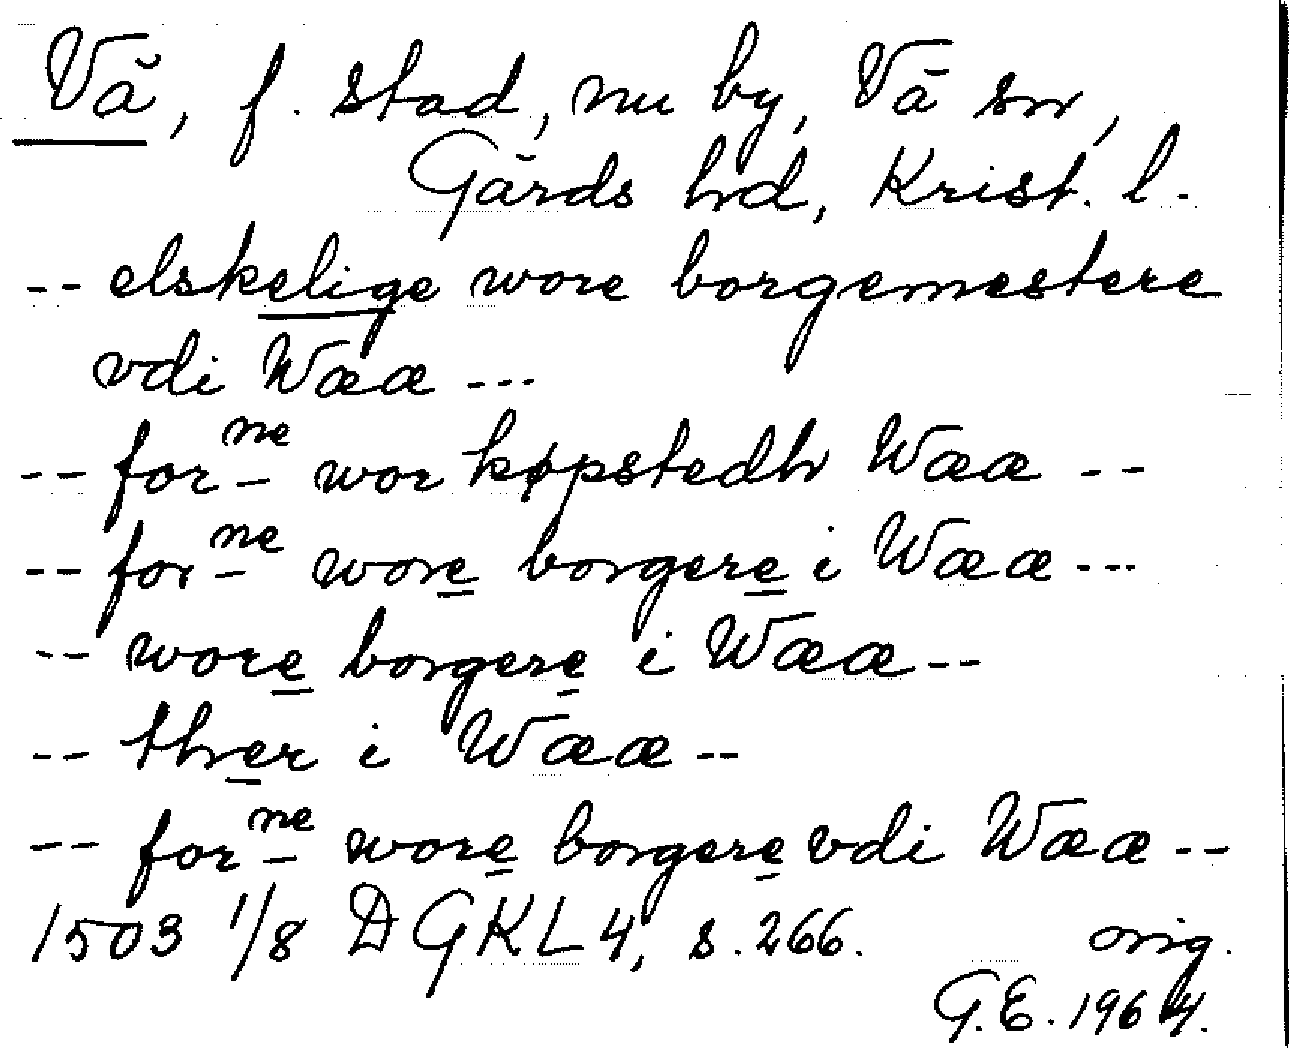 Vå, f. stad, nu by, Vå sn,
Gärds hd, Krist. l.
-- elskelige wore borgemestere
vdi Wææ ---
-- for^ne wor køpstedh Wææ --
-- for^ne wore borgere i Wææ ---
-- wore borgere i Wææ --
-- ther i Wææ --
-- for^ne wore borgere vdi Wææ --
1503 1/8 DGKL 4, s. 266. orig.
G.E. 1964.